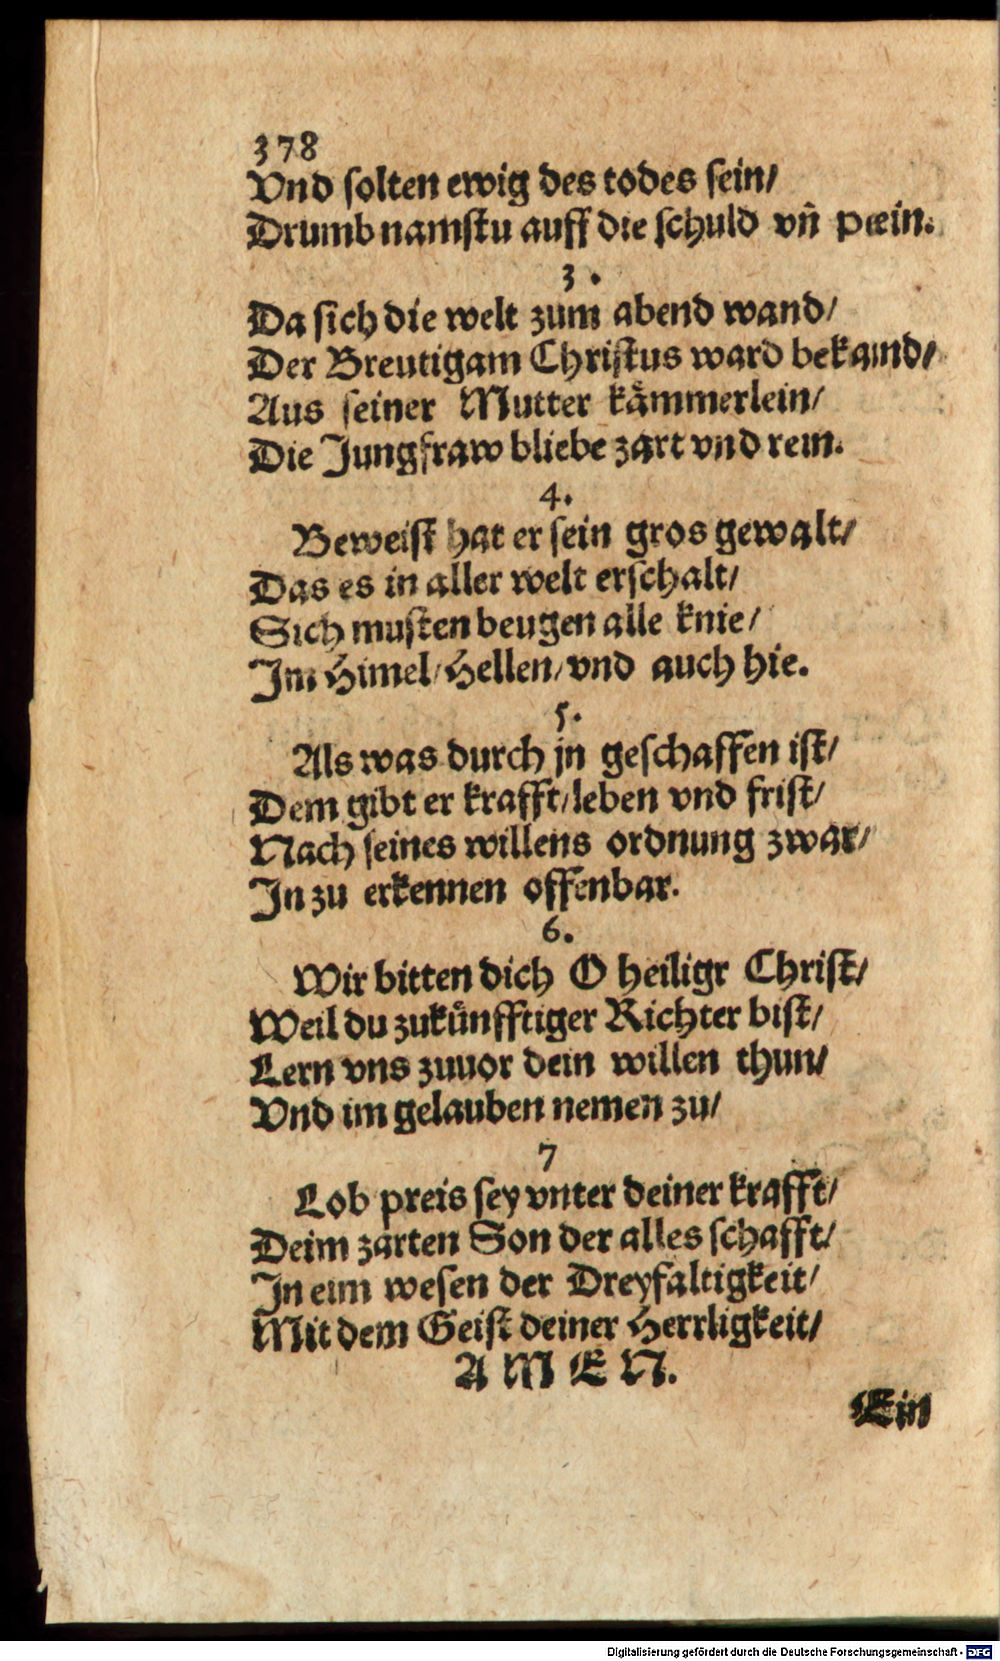 378
Vnd ſolten ewig des todes ſein/
Drumb namſtu auff die ſchuld vñ pœin.
3.
Da ſich die welt zum abend wand/
Der Breutigam Chriſtus ward bekand/
Aus ſeiner Mutter kämmerlein/
Die Jungfraw bliebe zart vnd rein.
4.
Beweiſt hat er ſein gros gewalt/
Das es in aller welt erſchalt/
Sich muſten beugen alle knie/
Im Himel/ Hellen/ vnd auch hie.
5.
Als was durch jn geſchaffen iſt/
Dem gibt er krafft/ leben vnd friſt/
Nach ſeines willens ordnung zwar/
In zu erkennen offenbar.
6.
Wir bitten dich O heiligr Chriſt/
Weil du zukünfftiger Richter biſt/
Lern vns zuuor dein willen thun/
Vnd im gelauben nemen zu/
7
Lob preis ſey vnter deiner krafft/
Deim zarten Son der alles ſchafft/
In eim weſen der Dreyfaltigkeit/
Mit dem Geiſt deiner Herrligkeit/
A M E N.
Ein
Digitalisierung gefördert durch die Deutsche Forschungsgemeinschaft - DFG